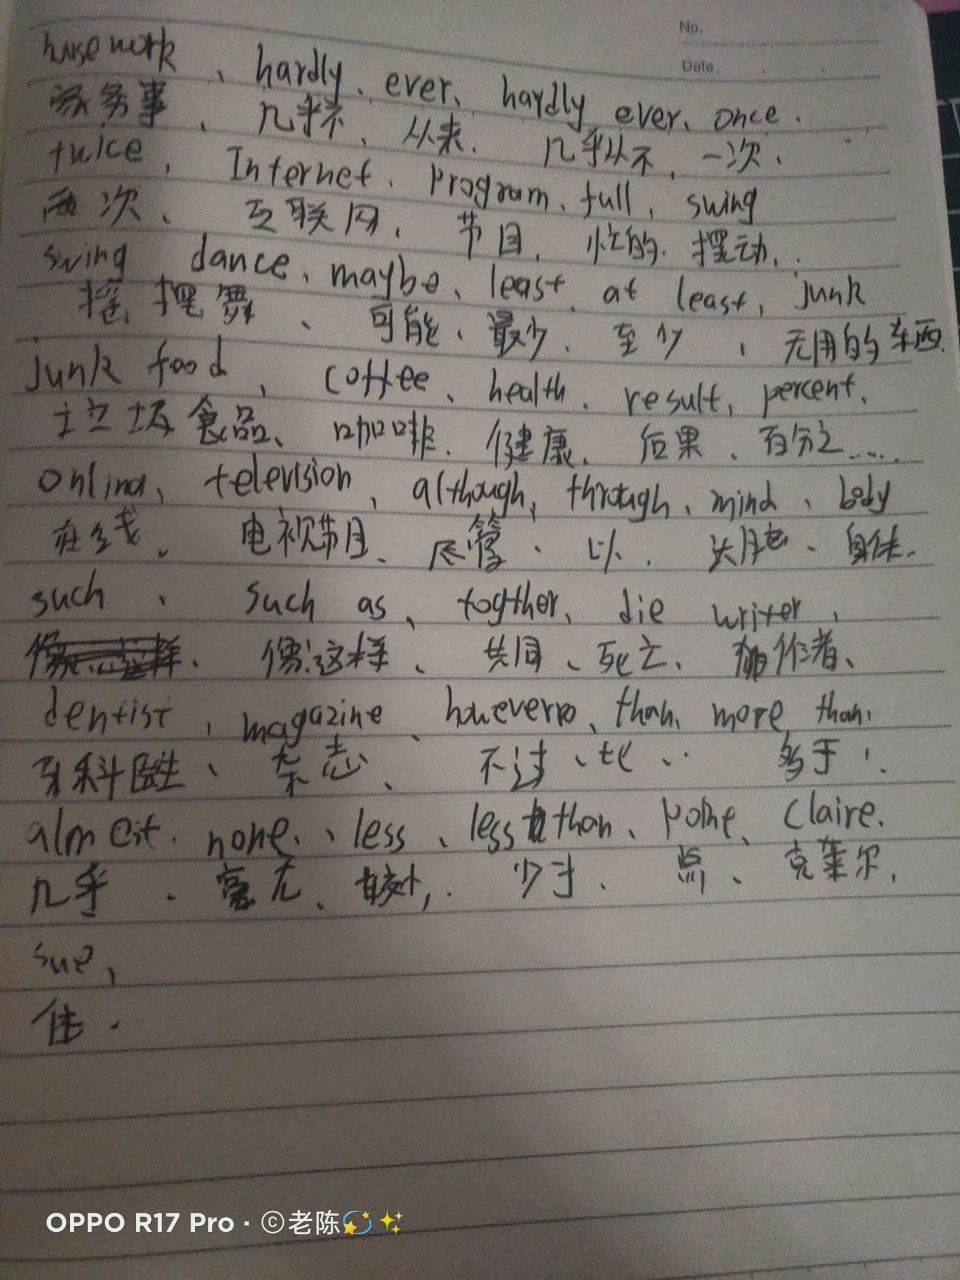 No.
Date.
housework、hardly、ever、hardly ever、once.
家务事、几乎不、从来、几乎从不、一次、
twice, Internet、program、full, swing
两次、互联网、节目、忙的、摆动、
swing dance、maybe、least、at least, junk
摇摆舞、可能、最少、至少、无用的东西
junk food, coffee、health、result, percent、
垃圾食品、咖啡、健康、后果、百分之……
online、television, although, through、mind、body
在线、电视节目、尽管、以、头脑、身体.
such、such as、togther、die writer,
像这样、共同、死亡、作者、
dentist, magazine、however、than、more than,
牙科医生、杂志、不过、比、多于、
almost. none、less、less than、point、Claire.
几乎、毫无、较少、少于、点、克莱尔、
sue,
OPPO R17 Pro · ©老陈💫✨